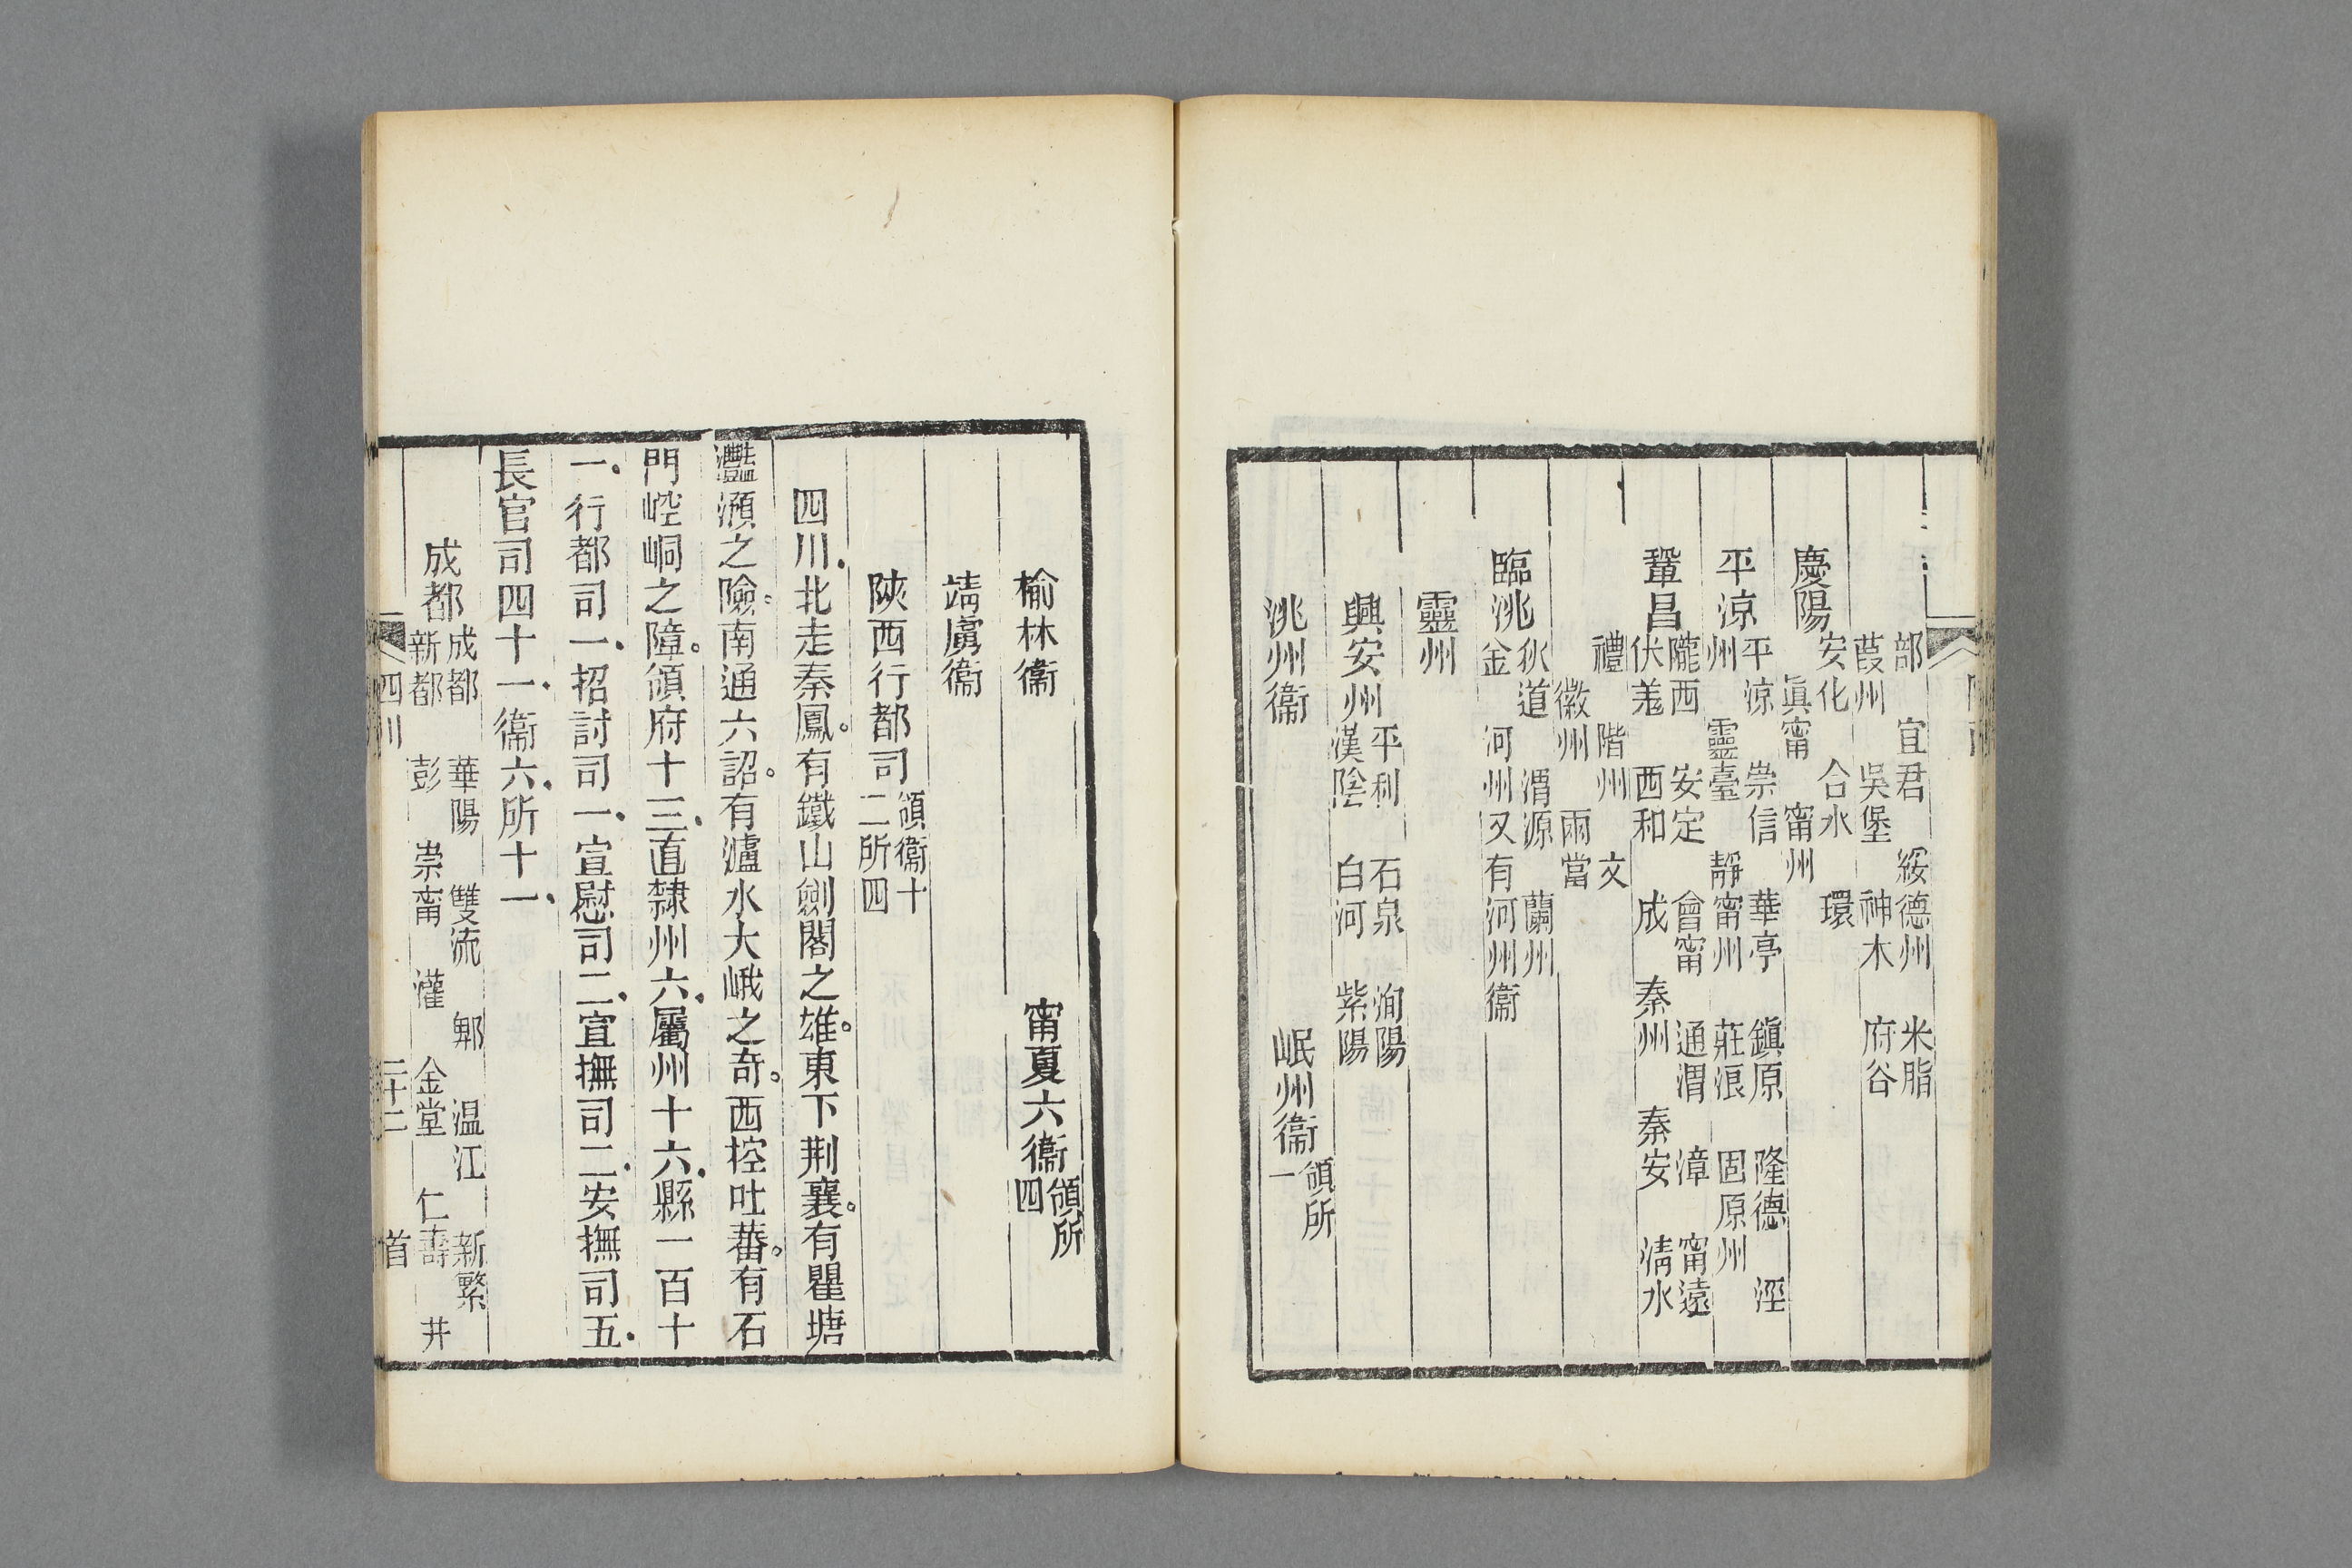 部　宜君　綏德州　米脂
葭州　吳堡　神木　府谷
慶陽
安化　合水　環
眞甯　甯州
平涼
平涼　崇信　華亭　鎮原　隆德　涇
州　靈臺　靜甯州　莊浪　固原州
鞏昌
隴西　安定　會甯　通渭　漳　甯遠
伏羌　西和　成　秦州　秦安　清水
禮　階州　文
徽州　兩當
臨洮
狄道　渭源　蘭州
金　河州又有河州衞
靈州
興安州
平利　石泉　洵陽
漢陰　白河　紫陽
洮州衞　岷州衞
領所
一
榆林衞　甯夏六衞
領所
四
靖虜衞
陜西行都司
領衞十
二所四
四川北走秦鳳有鐵山劍閣之雄東下荆襄有瞿塘
灩澦之險南通六詔有瀘水大峨之奇西控吐蕃有石
門崆峒之障領府十三直隸州六屬州十六縣一百十
一行都司一招討司一宣慰司二宣撫司二安撫司五
長官司四十一衞六所十一
成都
成都　華陽　雙流　郫　温江　新繁
新都　彭　崇甯　灌　金堂　仁壽　井
四川　二十二　首